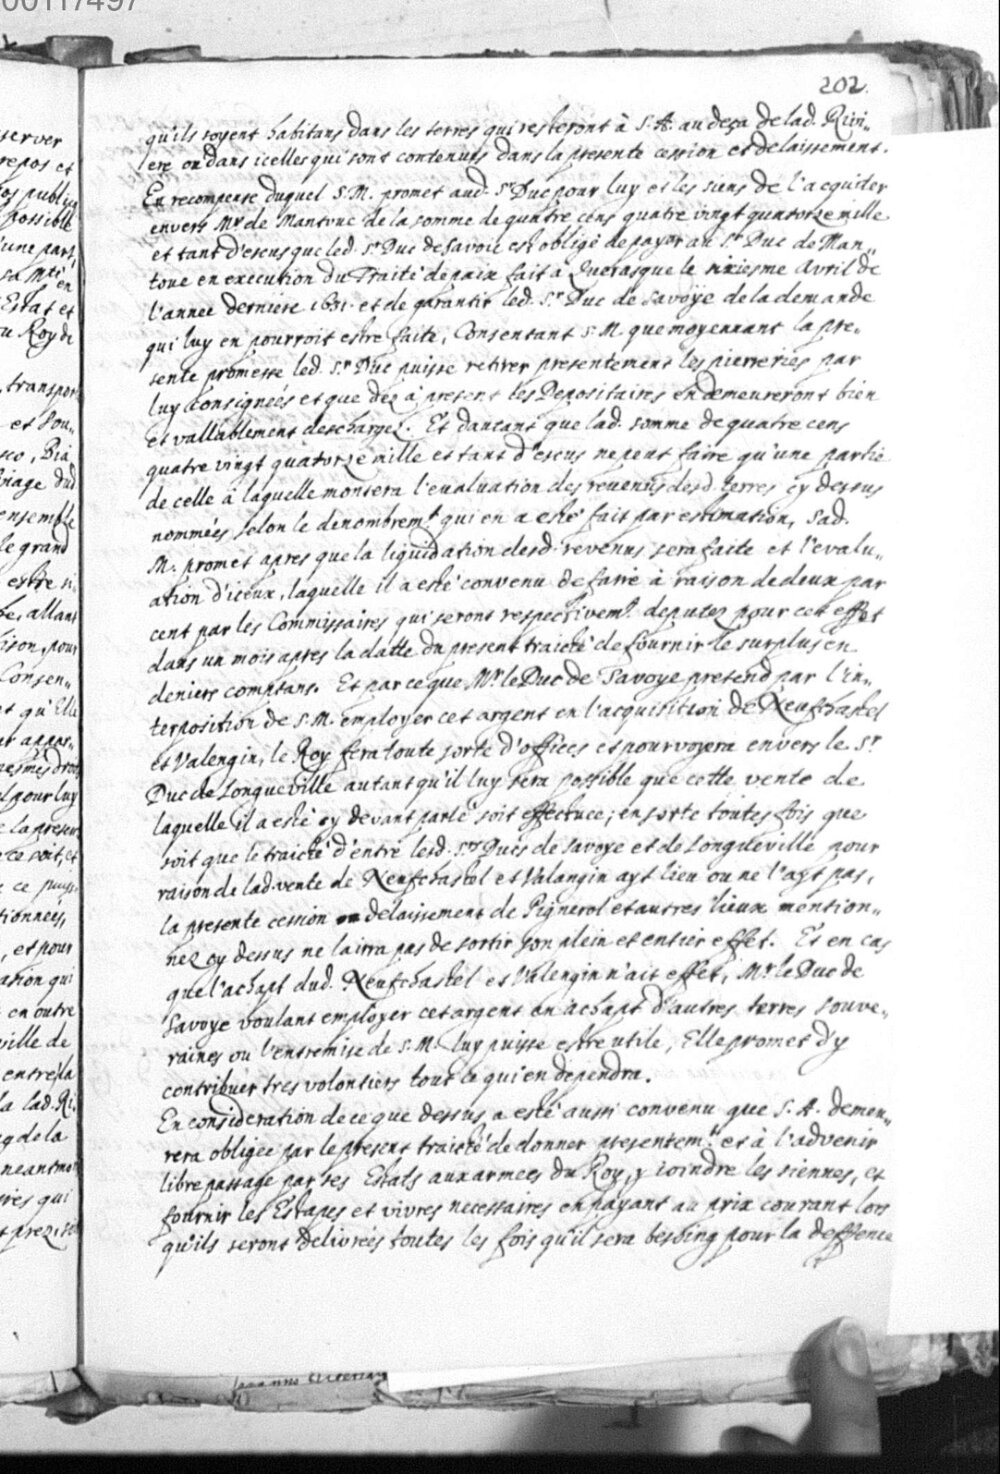 00117497
202.
qu'ils soyent habitans dans les terres qui resteront à S. A. au deça de lad. Rivi„
ere ou dans icelles qui sont contenues dans la presente cession et delaissement.
En recompense duquel S. M. promet aud. Sr. Duc pour luy et les siens de l'acquiter
envers Mr. de Mantoue de la somme de quatre cens quatre vingt quatorze mille
et tant d'escus que led. Sr. Duc de Savoie est obligé de payer au Sr. Duc de Man„
toue en execution du Traité de paix fait à Querasque le sixiesme Avril de
l'année derniere 1631. et de garantir led. Sr. Duc de Savoÿe de la demande
qui luy en pourroit estre faite, Consentant S. M. que moyennant la pre„
sente promesse led. Sr. Duc puisse retirer presentement les pierreries par
luy consignées et que dez à present les Depositaires en demeureront bien
et vallablement deschargez. Et dautant que lad. somme de quatre cens
quatre vingt quatorze mille et tant d'escus ne peut faire qu'une partie
de celle à laquelle montera l'evaluation des revenus desd. terres cy dessus
nommées, selon le denombremt. qui en a esté fait par estimation, Sad.
M. promet apres que la liquidation desd. revenus sera faite et l'evalu„
ation d'iceux, laquelle il a esté convenu de faire à raison de deux par
cent par les Commissaires qui seront respectivemt. deputez pour cet effet
dans un mois apres la datte du present traicté de fournir le surplus en
deniers comptans. Et parce que Mr. le Duc de Savoye pretend par l'in„
terposition de S. M. employer cet argent en l'acquisition de Neufchastel
et Valengin, le Roy fera toute sorte d'offices et pourvoyera envers le Sr.
Duc de Longueville autant qu'il luy sera possible que cette vente de
laquelle il a esté cy devant parlé soit effectuee; en sorte toutes fois que
soit que le traicté d'entre lesd. Srs. Ducs de Savoye et de Longueville pour
raison de lad. vente de Neufchastel et Valangin ayt lieu ou ne l'ayt pas,
la presente cession delaissement de Pignerol et autres lieux mention„
nez cy dessus ne lairra pas de sortir son plein et entier effet. Et en cas
que l'achapt dud. Neufchastel et Valengin n'ait effet, Mr. le Duc de
Savoye voulant employer cet argent en achapt d'autres terres souve„
raines ou l'entremise de S. M. luy puisse estre utile, Elle promet d'y
contribuer tres volontiers tout ce qui en dependra.
En consideration de ce que dessus a esté aussi convenu que S. A. demeu„
rera obligée par le present traicté de donner presentemt. et à l'advenir
libre passage par ses Estats aux armees du Roy, y joindre les siennes, et
fournir les Estapes et vivres necessaires en payant au prix courant lors
qu'ils seront delivrées toutes les fois qu'il sera besoing pour la deffence